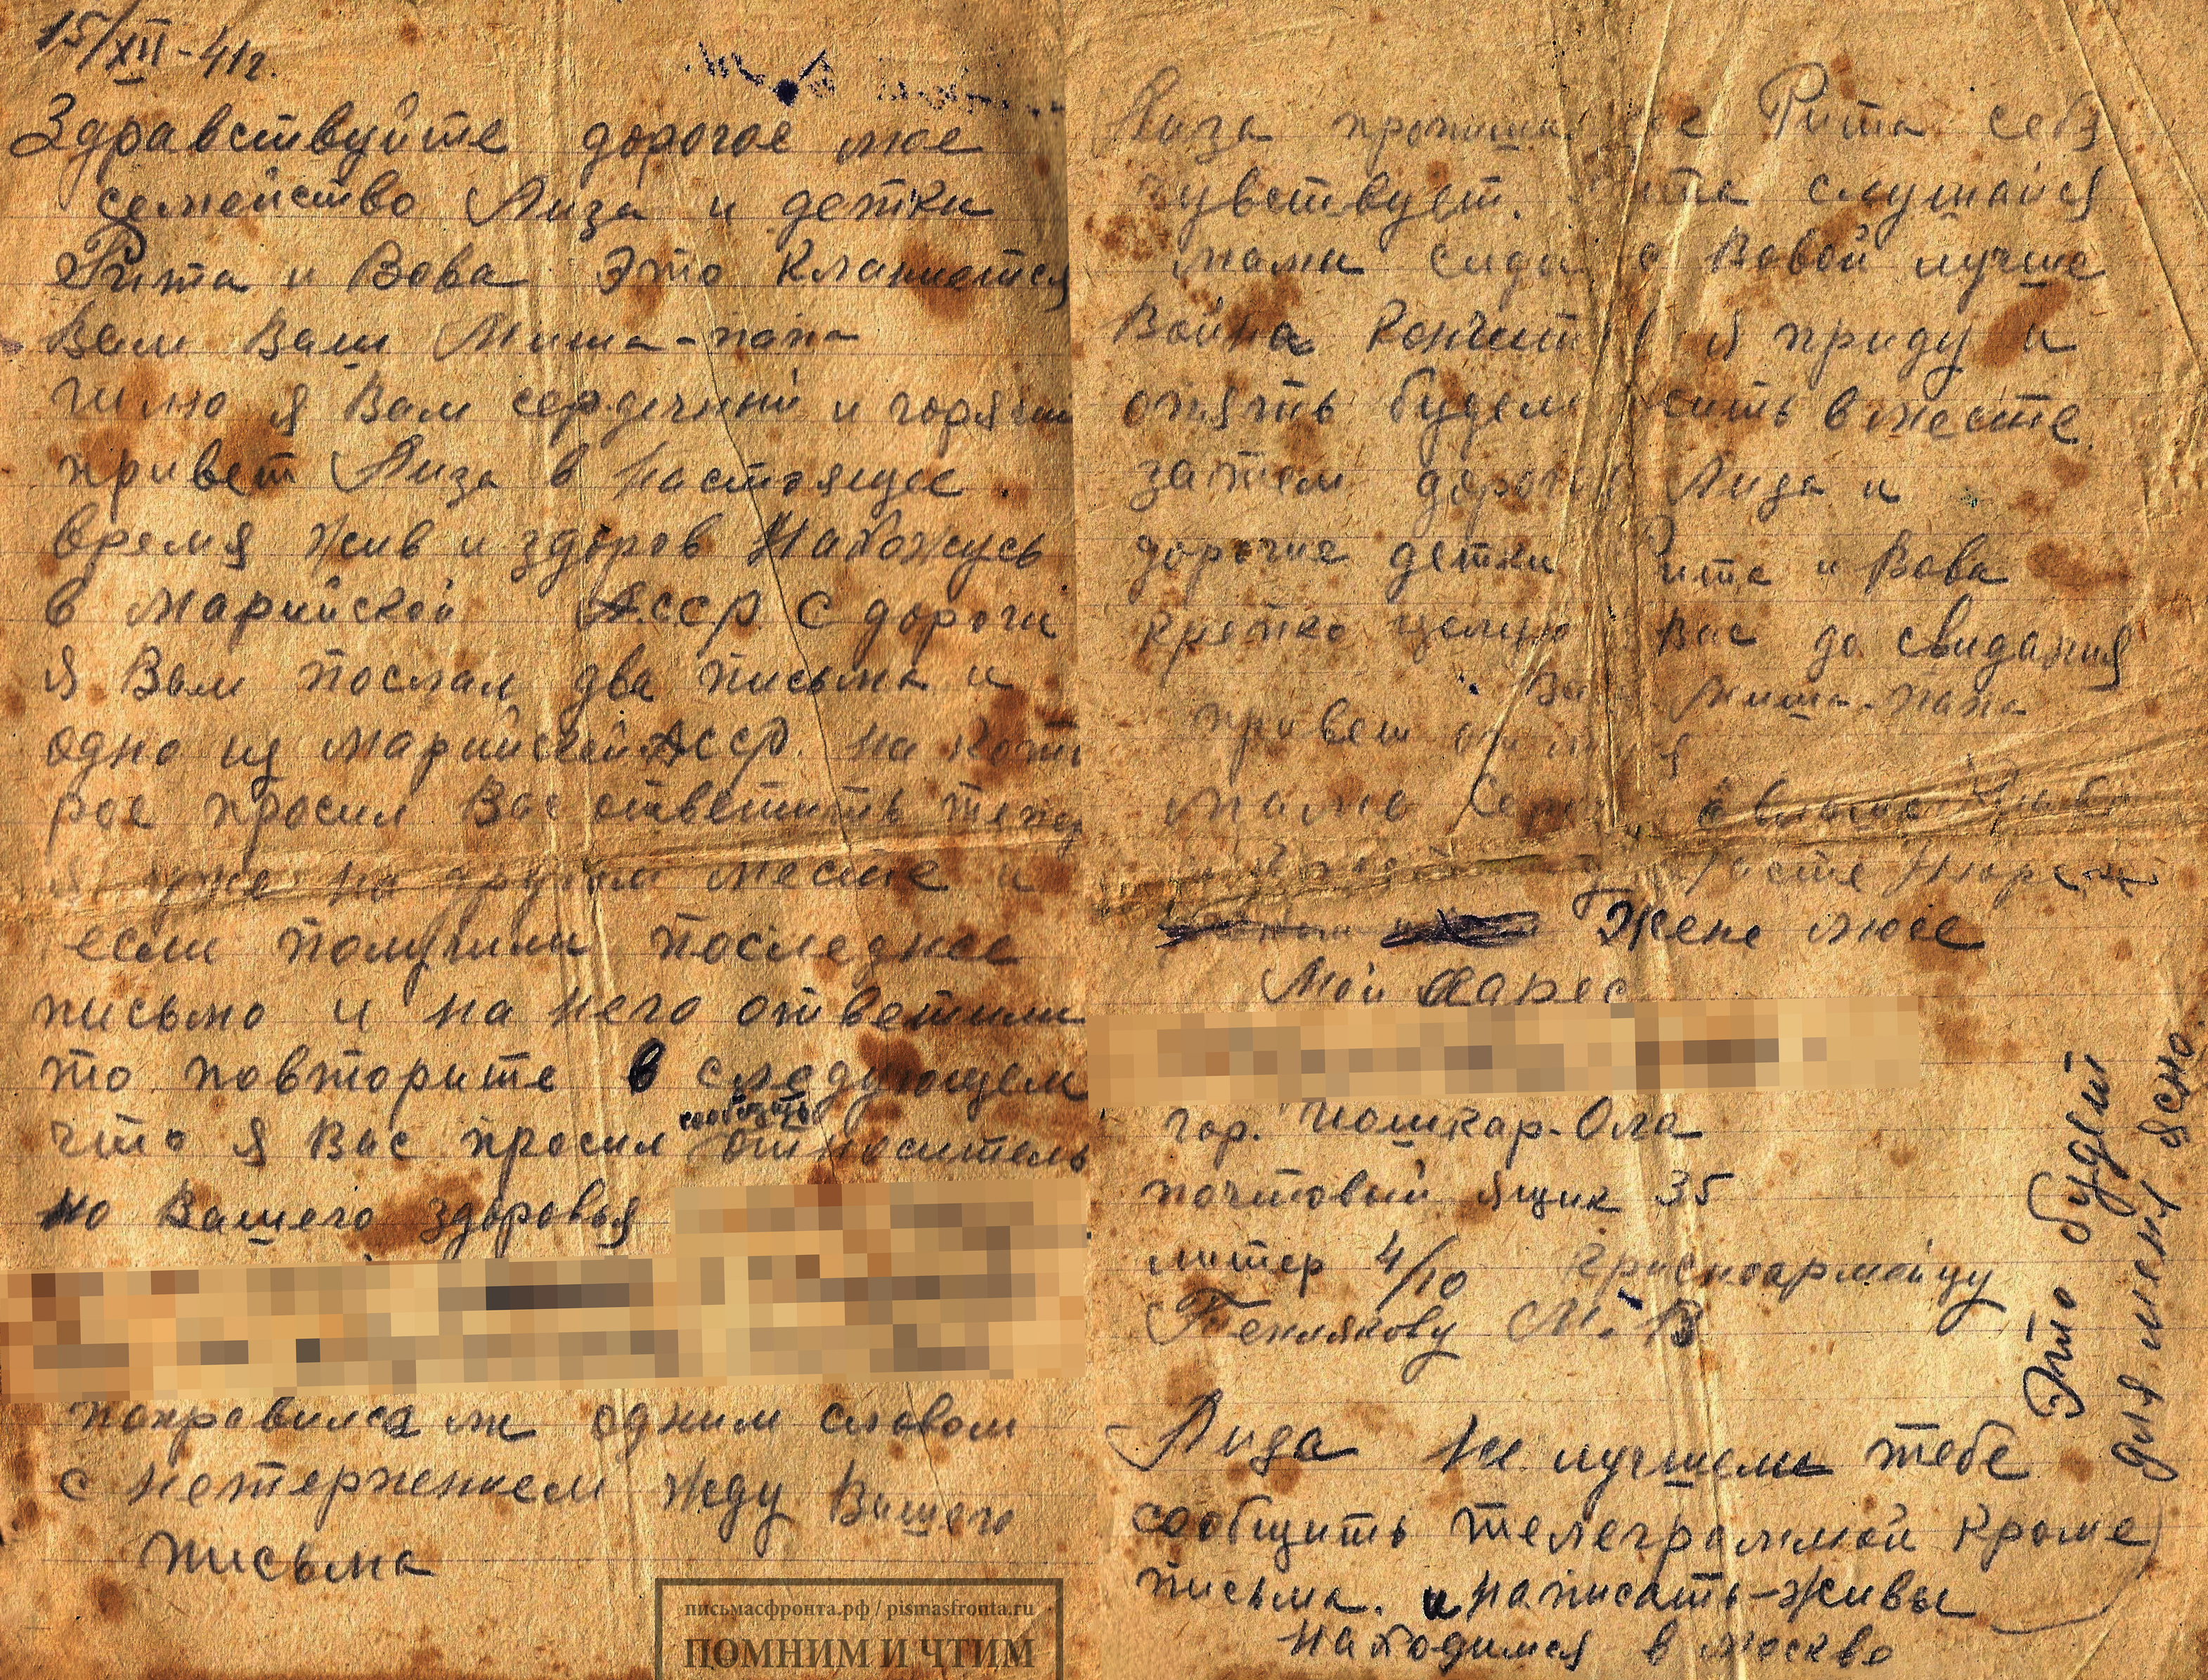 15/XII-41г.
Здравствуйте дорогое мое
семейство Лиза и детки
Рита и Вова Это кланиется
Вам Ваш Миша-папа
Шлю я Вам сердечний и горячий
привет Лиза в настоящее
время жив и здоров Нахожусь
в Марийской А.ССР. С дороги
я Вам послал два письма и
одно из Марийской АССР. на кото
рое просил Вас ответить тепер
я уже на другом месте и
если получили последнее
письмо и на него ответили
то повторите в следующем
что я Вас просил сообщить относитель
но Вашего здоровья
поправился ли одним словом
с нетерпением жду Вашего
письма
письмасфронта.рф / pismasfronta.ru
ПОМНИМ И ЧТИМ
Лиза Рита себя
чувствует. слушайся
мами сиди с Вовой лучше
Война кончит я приду и
опять будем вместе.
затем дорогая Лиза и
дорогие детки Рита и Вова
крепко целую Вас до свидания
Ваш Миша-папа
привет
маме
Жене
Мой адрес
гор. Йошкар-Ола
почтовый ящик 35
литер 4/10 Красноармейцу
М. В
Лиза не лучшели тебе
сообщить телеграммой кроме
письма. и написать-живы
находимся в Москве
Это будет
для меня ясно.